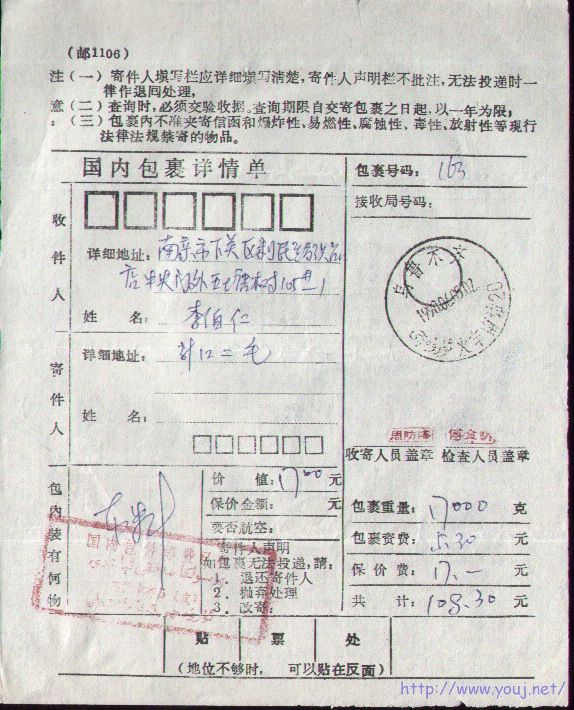 (邮1106)
注(一)寄件人填写栏应详细填写清楚，寄件人声明栏不批注，无法投递时一
律作退回处理，
意(二)查询时，必须交验收据。查询期限自交寄包裹之日起，以一年为限；
：(三)包裹内不准夹寄信函和爆炸性、易燃性、腐蚀性、毒性、放射性等现行
法律法规禁寄的物品。
国内包裹详情单
包裹号码：163
接收局号码：
收件人
详细地址：南京市下关区利民
店中央门外
姓 名：李伯仁
寄件人
详细地址：
姓 名：
收寄人员盖章 检查人员盖章
包内装有何物
价 值：1700元
保价金额： 元
要否航空：
寄件人声明
如包裹无法投递，請：
1．退还寄件人
2．抛弃处理
3．改寄：
包裹重量：17000 克
包裹资费：5.30 元
保价费：17.— 元
共 计：108.30 元
贴 票 处
(地位不够时， 可以贴在反面)
http://www.youj.net/